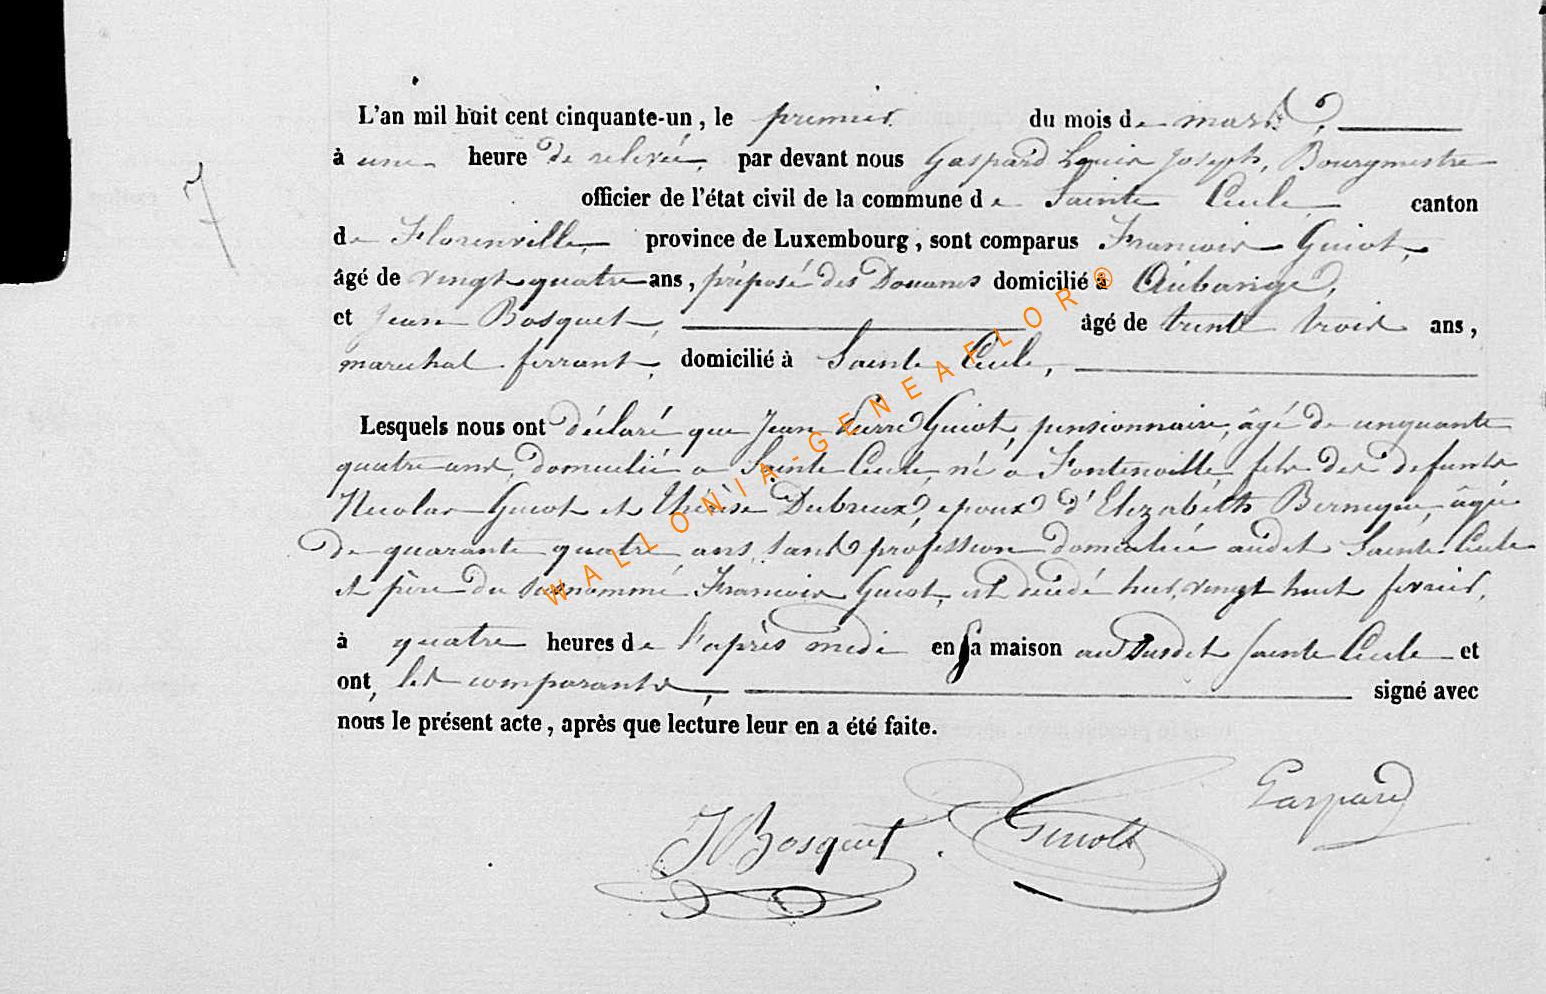 L'an mil huit cent cinquante-un, le premier du mois de mars,
7
à une heure de relevée, par devant nous Gaspard Louis Joseph, Bourgmestre
officier de l'état civil de la commune de Sainte Cécile canton
de Florenville, province de Luxembourg, sont comparus François Guiot,
âgé de vingt quatre ans, préposé des Douanes domicilié à Aubange,
et Jean Bosquet, âgé de trente trois ans,
marechal ferrant, domicilié à Sainte Cécile,
Lesquels nous ont déclaré que Jean Pierre Guiot, pensionnaire, âgé de cinquante
quatre ans, domicilié a Sainte Cécile, né a Fontenoille, fils des defunts
Nicolas Guiot et Thérèse Dubreux, epoux d'Elizabéth Bernique, âgée
de quarante quatre ans, sans profession domiciliée audit Sainte Cécile
et père du susnommé François Guiot, est décédé hier, vingt huit fevrier,
à quatre heures de l'après midi en sa maison au susdit Sainte Cécile et
ont, les comparants, signé avec
nous le présent acte, après que lecture leur en a été faite.
Gaspard
J Bosquet Guiot
WALLONIA-GENEAFLOR®